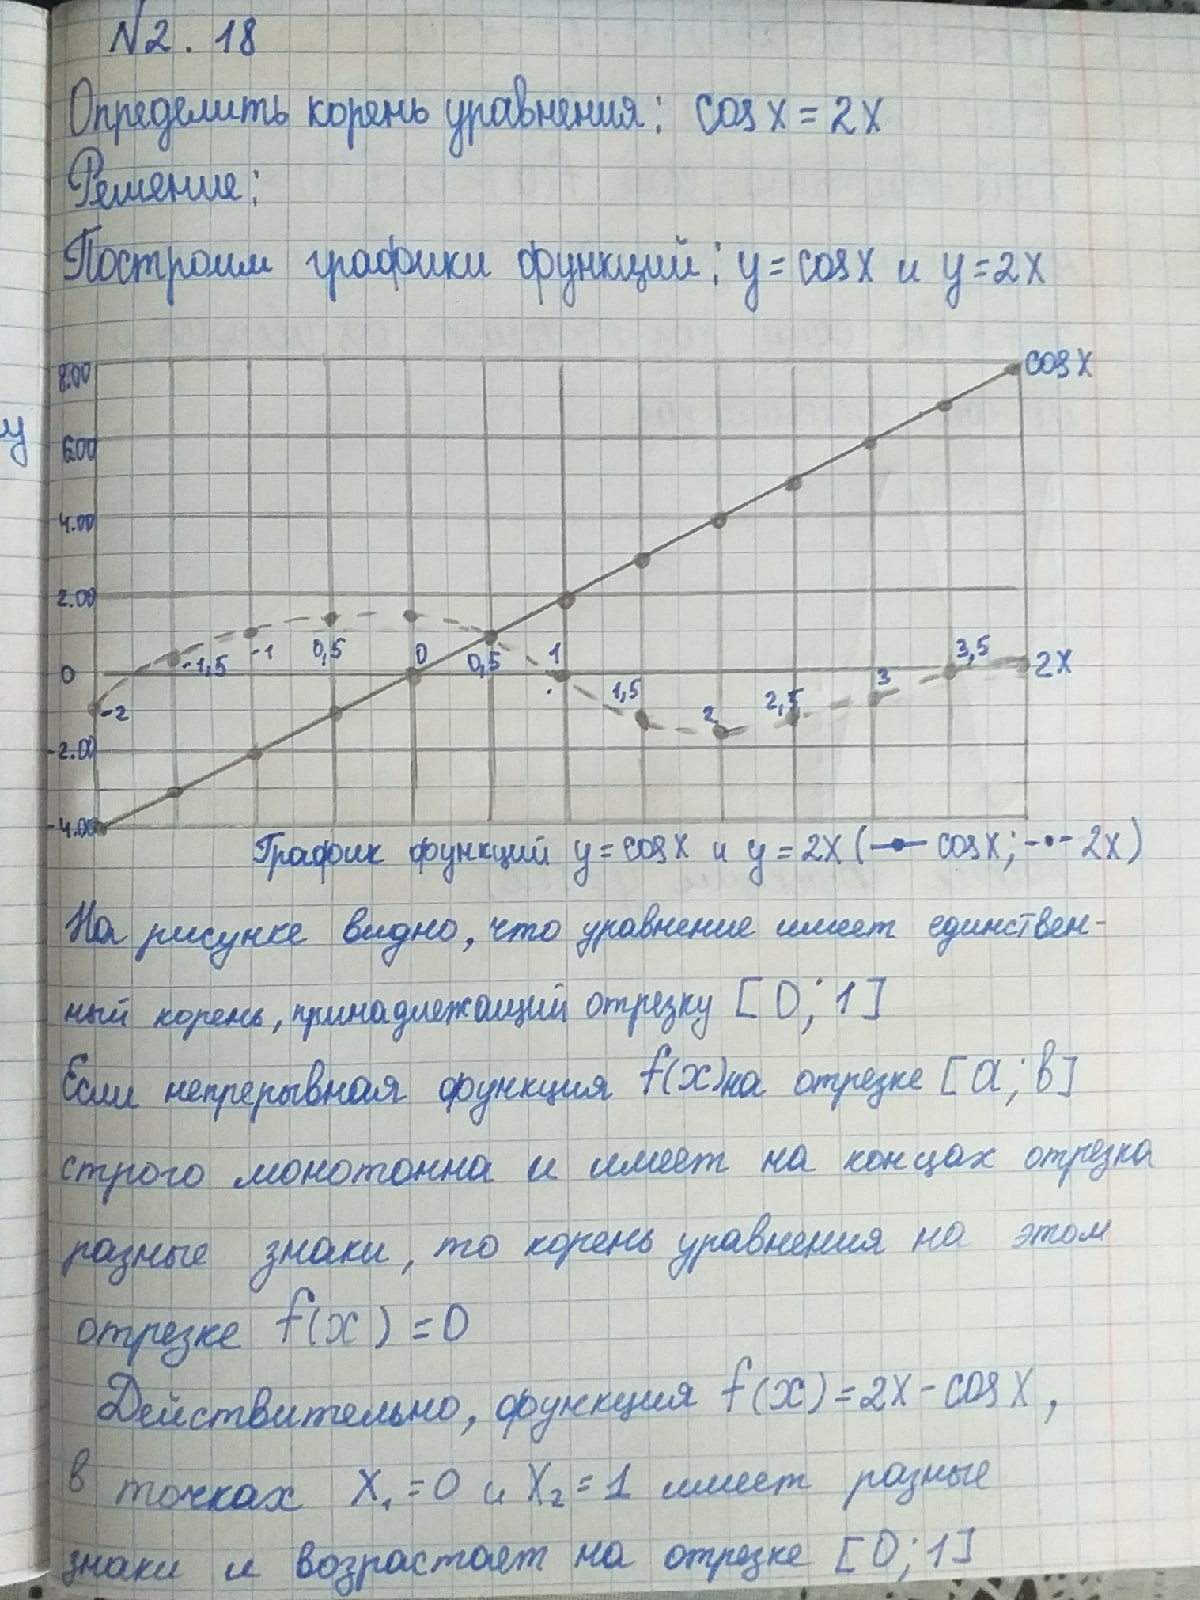 №2. 18
Определить корень уравнения: cos x = 2x
Решение:
Построим графики функций: y = cos x и y = 2x
y
8.00
cos x
6.00
4.00
2.00
0
-2
-1,5
-1
0,5
0
0,5
1
1,5
2
2,5
3
3,5
2x
-2.00
-4.00
График функций y = cos x и y = 2x ( cos x; 2x)
На рисунке видно, что уравнение имеет единствен-
ный корень, принадлежащий отрезку [0; 1]
Если непрерывная функция f(x) на отрезке [a; b]
строго монотонна и имеет на концах отрезка
разные знаки, то корень уравнения на этом
отрезке f(x) = 0
Действительно, функция f(x) = 2x - cos x,
в точках x₁ = 0 и x₂ = 1 имеет разные
знаки и возрастает на отрезке [0; 1]